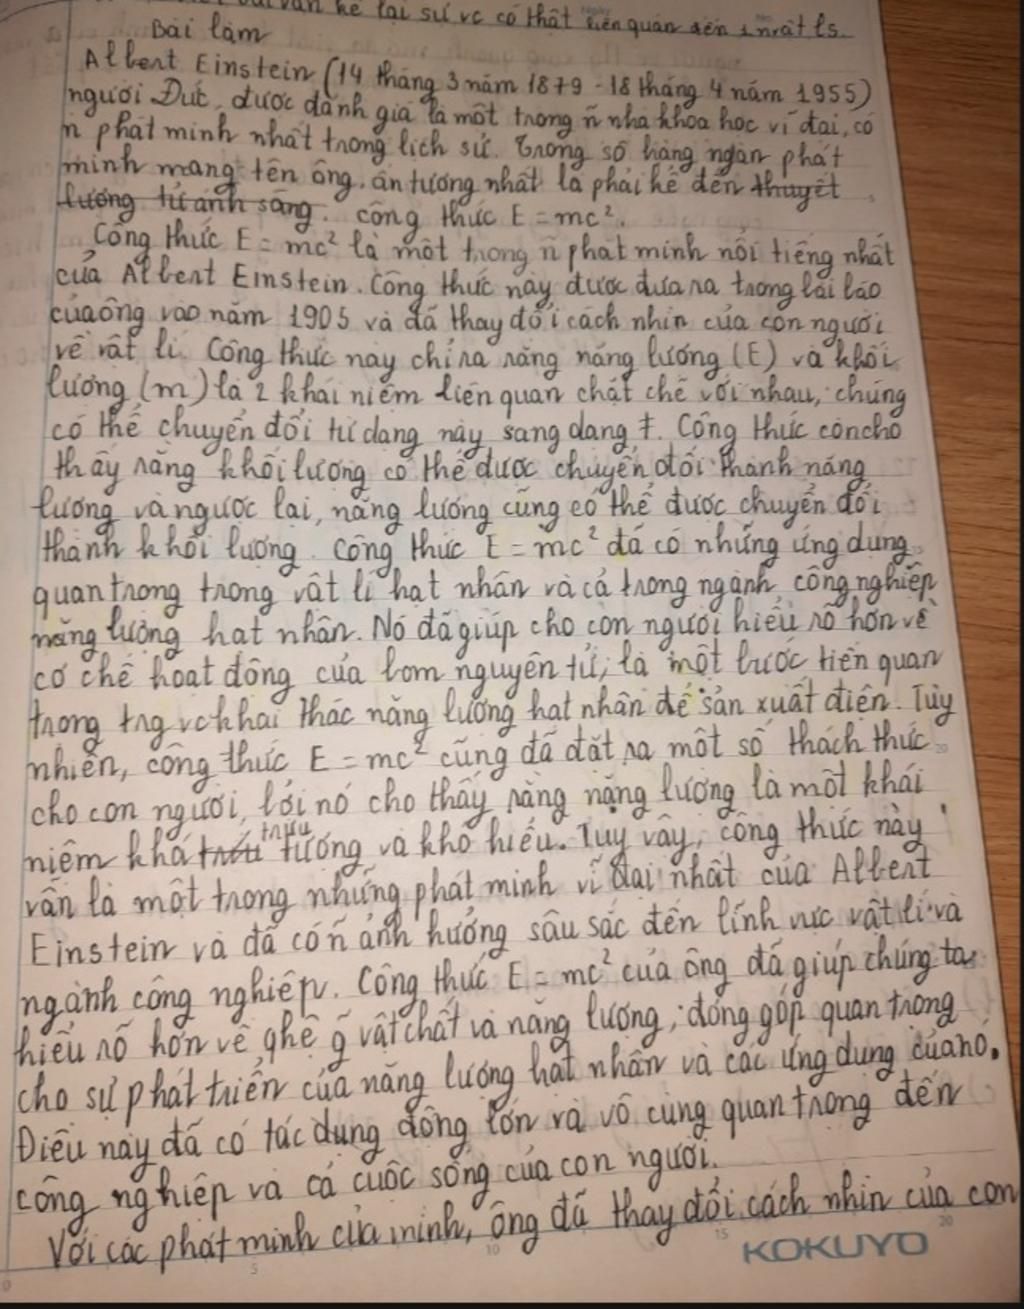 bài văn kể lại sự vc có thật liên quan đến 1 nvật ls.
Bài làm
Albert Einstein (14 tháng 3 năm 1879 - 18 tháng 4 năm 1955)
người Đức, được đánh giá là một trong ~n nhà khoa học vĩ đại, có
~n phát minh nhất trong lịch sử. Trong số hàng ngàn phát
minh mang tên ông, ấn tượng nhất là phải kể đến thuyết
lượng tử ánh sáng. công thức E = mc².
Công thức E = mc² là một trong ~n phát minh nổi tiếng nhất
của Albert Einstein. Công thức này được đưa ra trong bài báo
của ông vào năm 1905 và đã thay đổi cách nhìn của con người
về vật lí. Công thức này chỉ ra rằng năng lượng (E) và khối
lượng (m) là 2 khái niệm liên quan chặt chẽ với nhau, chúng
có thể chuyển đổi từ dạng này sang dạng ≠. Công thức còn cho
thấy rằng khối lượng có thể được chuyển đổi thành năng
lượng và ngược lại, năng lượng cũng có thể được chuyển đổi
thành khối lượng. Công thức E = mc² đã có những ứng dụng
quan trọng trong vật lí hạt nhân và cả trong ngành công nghiệp
năng lượng hạt nhân. Nó đã giúp cho con người hiểu rõ hơn về
cơ chế hoạt động của bom nguyên tử, là một bước tiến quan
trọng trg vc khai thác năng lượng hạt nhân để sản xuất điện. Tuy
nhiên, công thức E = mc² cũng đã đặt ra một số thách thức
cho con người, bởi nó cho thấy rằng năng lượng là một khái
niệm khá trừu tượng và khó hiểu. Tuy vậy, công thức này
vẫn là một trong những phát minh vĩ đại nhất của Albert
Einstein và đã có ~n ảnh hưởng sâu sắc đến lĩnh vực vật lí và
ngành công nghiệp. Công thức E = mc² của ông đã giúp chúng ta
hiểu rõ hơn về qhệ g~ vật chất và năng lượng, đóng góp quan trọng
cho sự phát triển của năng lượng hạt nhân và các ứng dụng của nó.
Điều này đã có tác dụng động lớn và vô cùng quan trọng đến
công nghiệp và cả cuộc sống của con người.
Với các phát minh của mình, ông đã thay đổi cách nhìn của con
5 10 15 20
KOKUYO